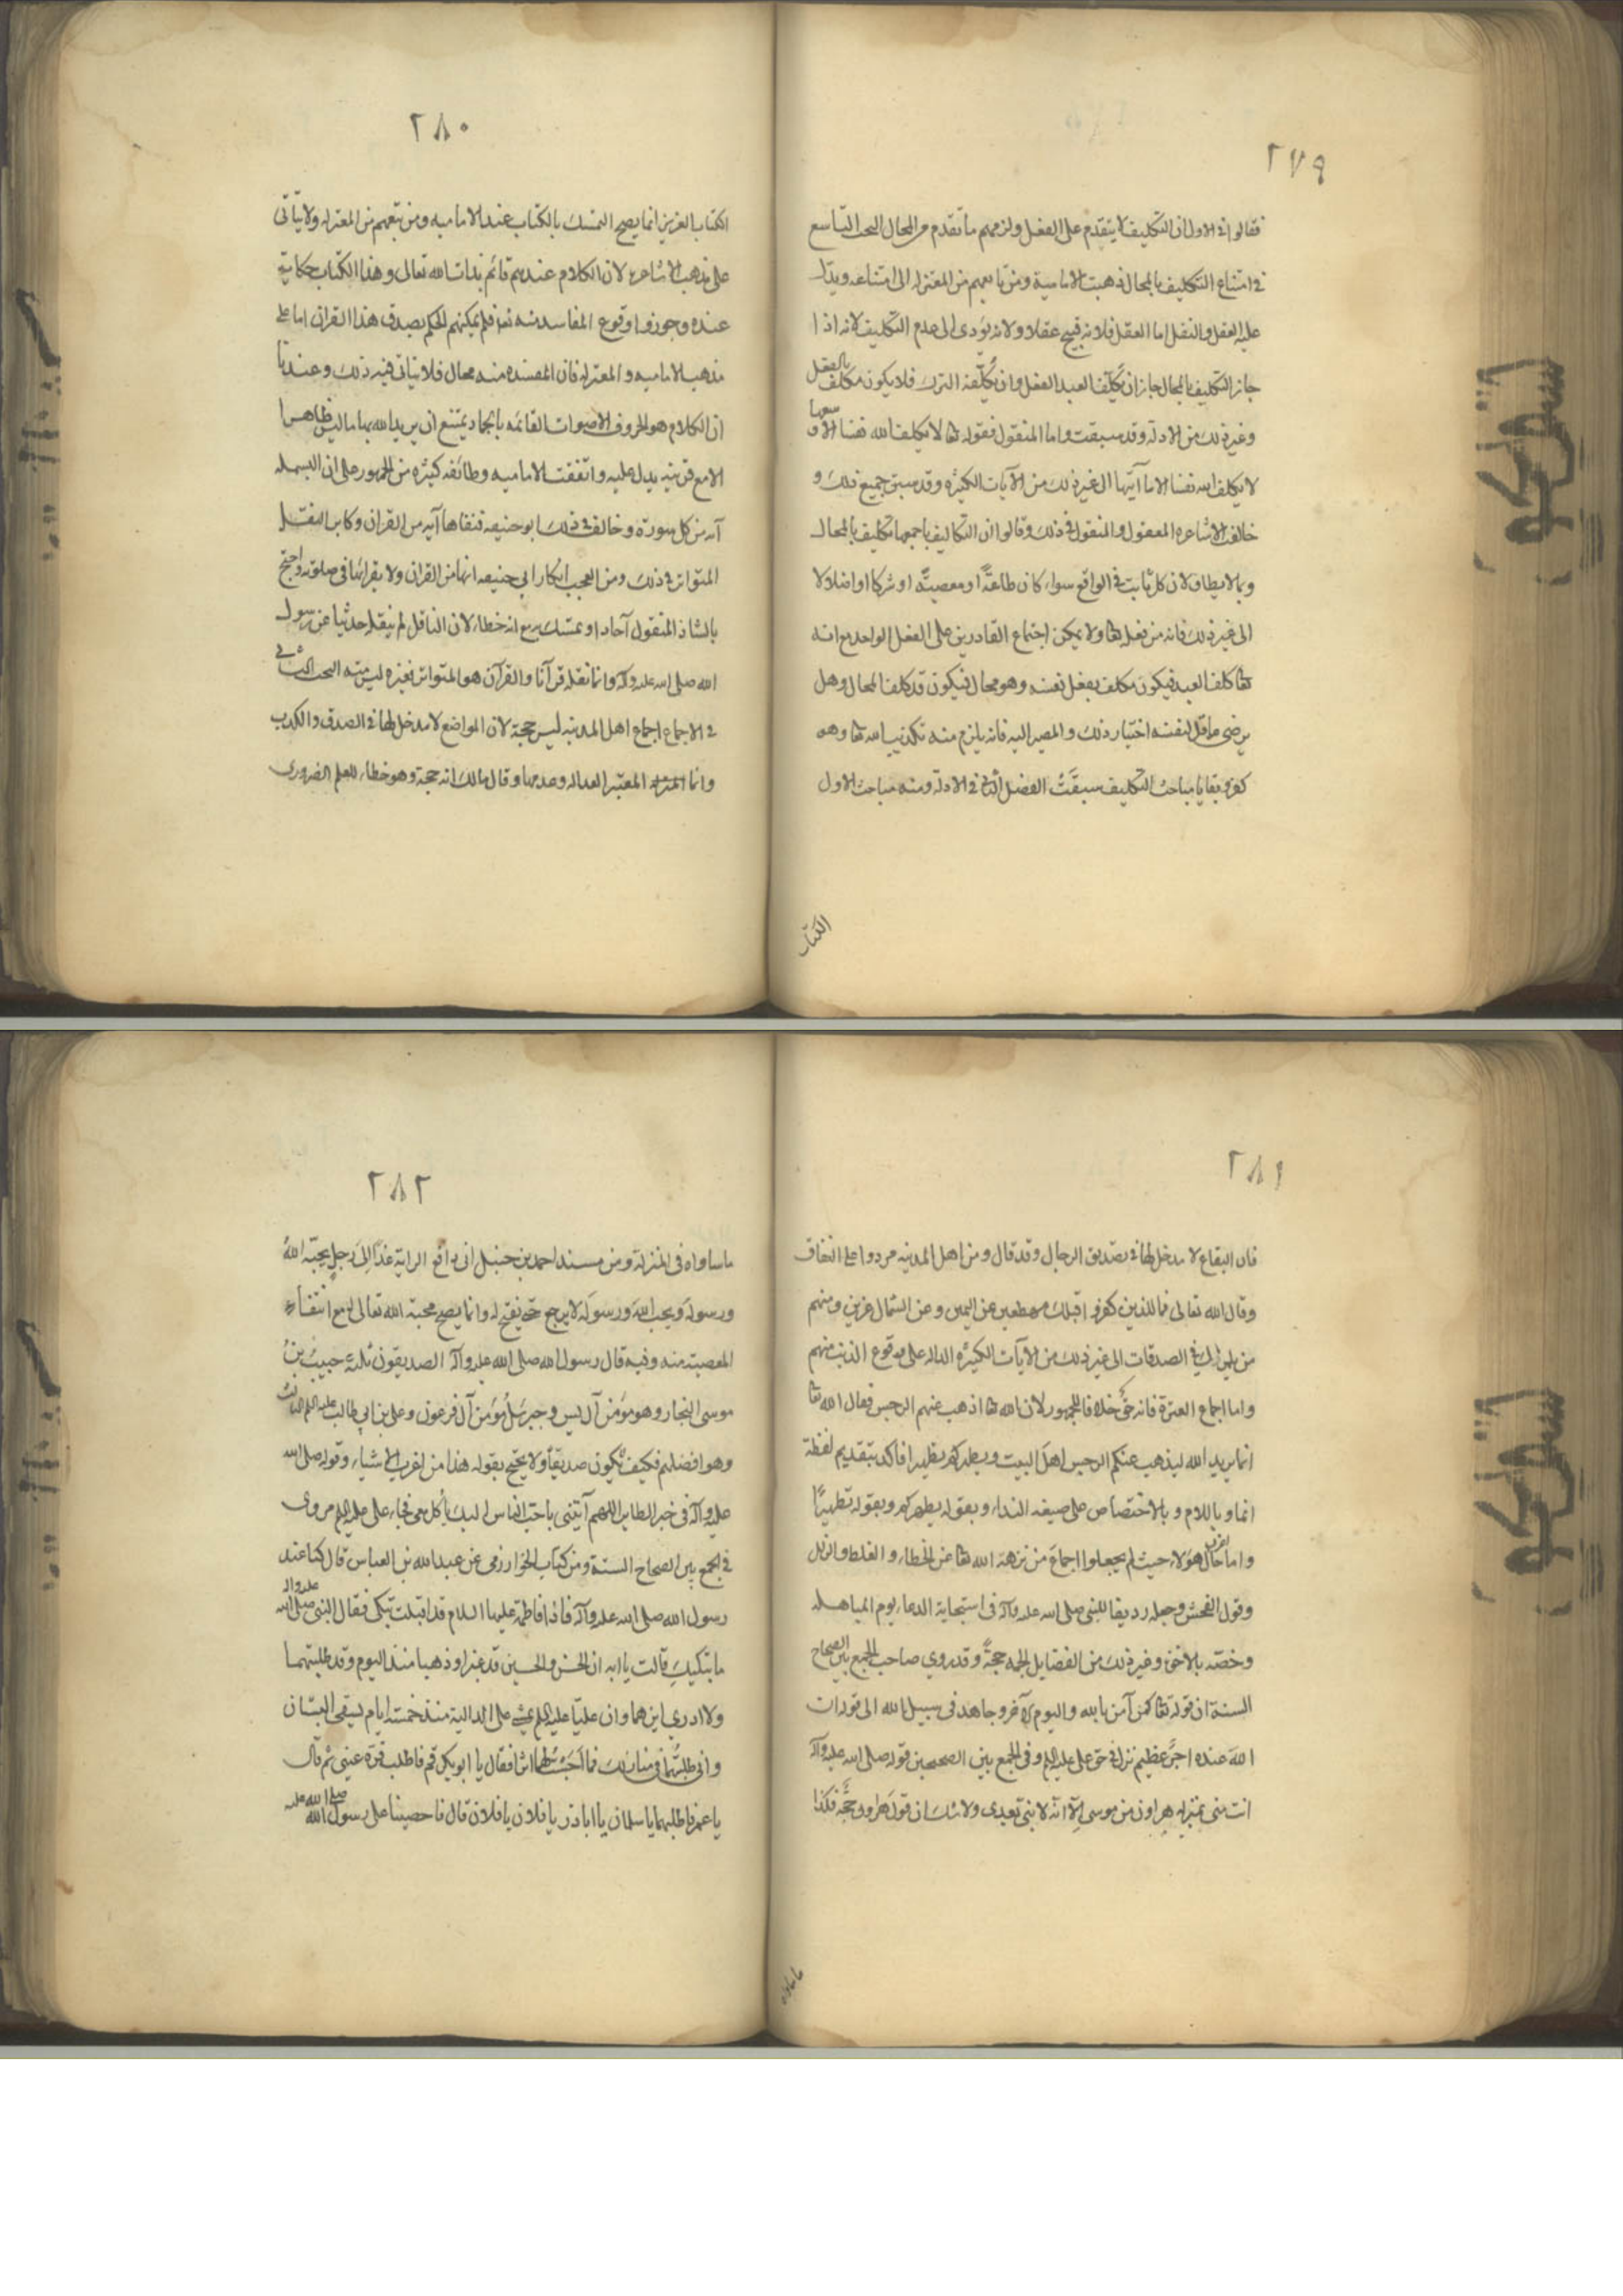 ٢٧٩
فقالوا في الاول ان التكليف لا يتقدم على الفعل ولزمهم ما تقدم من المحال البحث التاسع
في امتناع التكليف بالمحال ذهبت الامامية ومن تابعهم من المعتزله الى امتناعه ويدل
عليه العقل والنقل اما العقل فلانه قبيح عقلا ولانه يؤدى الى عدم التكليف لانه اذا
جاز التكليف بالمحال جاز ان يكلّف العبد الفعل وان يُكلّفه الترك فلا يكون مكلف بالفعل
وغير ذلك من الادلة وقد سبقت واما المنقول فقوله تعا لا يكلف الله نفسا الا وسعها
لا يكلف الله نفسا الا ما آتيها الى غير ذلك من الآيات الكثيره وقد سبق جميع ذلك و
خالف الاشاعره المعقول والمنقول في ذلك وقالوا ان التكاليف باجمعها تكليف بالمحال
وبما لا يطاق لان كل ثابت في الواقع سواء كان طاعةً او معصيةً او شركا او اضلالا
الى غير ذلك فانه من فعله تعا ولا يمكن اجتماع القادرين على الفعل الواحد مع انه
تعا كلف العبد فيكون مكلف بفعل نفسه وهو محال فيكون قد كلف المحال وهل
يرضى عاقل لنفسه اختيار ذلك والمصير اليه فانه يلزم منه تكذيب الله تعا وهو
كفر وبقايا مباحث التكليف سبقَتْ الفصل الثاني في الادلة ومنه مباحث الاول
الكتاب
٢٨٠
الكتاب العزيز انما يصح التمسك بالكتاب عند الاماميه ومن تبعهم من المعتزله ولا يتأتى
على مذهب الاشاعره لان الكلام عندهم قائم بذات الله تعالى وهذا الكتاب حكاية
عنده وجوزوا وقوع المفاسد منه تعا فلم يمكنهم الحكم بصدق هذا القران اما على
مذهب الاماميه والمعتزله فان المفسده منه محال فلا يتاتى فيه ذلك وعندنا
ان الكلام هو الحروف الاصوات القائمه بالجماد يمتنع ان يريد الله بها ما ليس ظاهرا
الا مع قرينه يدل عليه واتفقت الاماميه وطائفه كثيره من الجمهور على ان البسمله
آيه من كل سورة وخالف في ذلك ابو حنيفه فنفاها آيه من القران وكابر النقل
المتواتر في ذلك ومن العجب انكار ابى حنيفه انها من القران ولا يقرأها فى صلوته واحتج
بالشاذ المنقول آحادا وتمسك به مع انه خطاء لان الناقل لم ينقله حديثا عن رسول
الله صلى الله عليه وآله وانما نقله قرآنا والقرآن هو المتواتر فغيره ليس منه البحث الثانى
في الاجماع اجماع اهل المدينه ليس حجة لان المواضع لا مدخل لها في الصدق والكذب
وانما المعتبر العداله وعدمها وقال مالك انه حجة وهو خطاء للعلم الضرورى
٢٨١
فان البقاع لا مدخل لها في تصديق الرجال وقد قال ومن اهل المدينه مردوا على النفاق
وقال الله تعالى فما للذين كفروا قبلك مهطعين عن اليمين وعن الشمال عزين ومنهم
من يلمزك في الصدقات الى غير ذلك من الآيات الكثيره الداله على وقوع الذنب منهم
واما اجماع العترة فانه حقٌ خلافا للجمهور لان الله تعا اذهب عنهم الرجس فقال الله تعا
انما يريد الله ليذهب عنكم الرجس اهل البيت ويطهركم تطهيرا فأكد بتقديم لفظة
انما وباللام وبالاختصاص على صيغه النداء وبقوله يطهركم وبقوله تطهيرًا
واما حال هؤلاء حيث لم يجعلوا اجماعَ من نزهه الله تعا عن الخطاء والغلط والزلل
وقول الفحش وجعله رديفا للنبى صلى الله عليه وآله فى استجابة الدعاء يوم المباهله
وخصّه بالاخوة وغير ذلك من الفضايل الجمه حجةً وقد روي صاحب الجمع بين الصحاح
الستة ان قوله تعا كمن آمن بالله واليوم الآخر وجاهد فى سبيل الله الى قوله ان
الله عنده اجرٌ عظيم نزل في حق على عليه السلم وفى الجمع بين الصحيحين قوله صلى الله عليه وآله
انت منى بمنزله هرون من موسى إلّا انّه لا نبى بعدى ولا شك ان قول هرون حجّه فكذا
ما ساواه
٢٨٢
ما ساواه فى المنزلة ومن مسند احمد بن حنبل انى دافع الراية غدًا إلى رجل يحبّه اللهُ
ورسولَه ويحب الله ورسوله لا يرجع حتى يفتح له وانما يصح محبة الله تعالى له مع انتفاء
المعصية منه وفيه قال رسول الله صلى الله عليه وآله الصديقون ثلثة حبيبُ بنُ
موسى النجار وهو مؤمن آل يس وحزقيل مُؤمن آل فرعون وعلى بن ابى طالب عليه السلم الثالث
وهو افضلهم فكيف يكون صديقا ولا يحتج بقوله هذا من اغرب الاشياء وقوله صلى الله
عليه وآله فى خبر الطاير اللهم آتينى باحب الناس اليك يأكل معى فجاء على عليه السلم مروى
في الجمع بين الصحاح الستة ومن كتاب الخوارزمى عن عبد الله بن العباس قال كنا عند
رسول الله صلى الله عليه وآله فاذا فاطمة عليها السلام قد اقبلت تبكى فقال النبى صلى الله عليه وآله
ما يبكيكِ قالت يا ابه ان الحسن والحسين قد غبرا وذهبا منذ اليوم وقد طلبتهما
ولا ادري اين هما وان عليّا عليه السلم يمشى على الدالية منذ خمسة ايام يسقى البستان
وانى طلبتُهما فى منازلك فما احسَسْتُ لهما اثرا فقال يا ابو بكر قم فاطلب قرة عينى ثم قال
يا عمر فاطلبهما يا سلمان يا اباذر يا فلان يا فلان قال فاحصينا على رسول الله صلى الله عليه